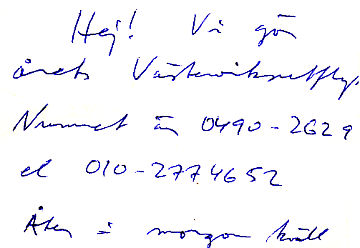 Hej! Vi gör
årets Västerviksutflykt.
Numret är 0490-2629
el 010-2774652
Åter i morgon kväll